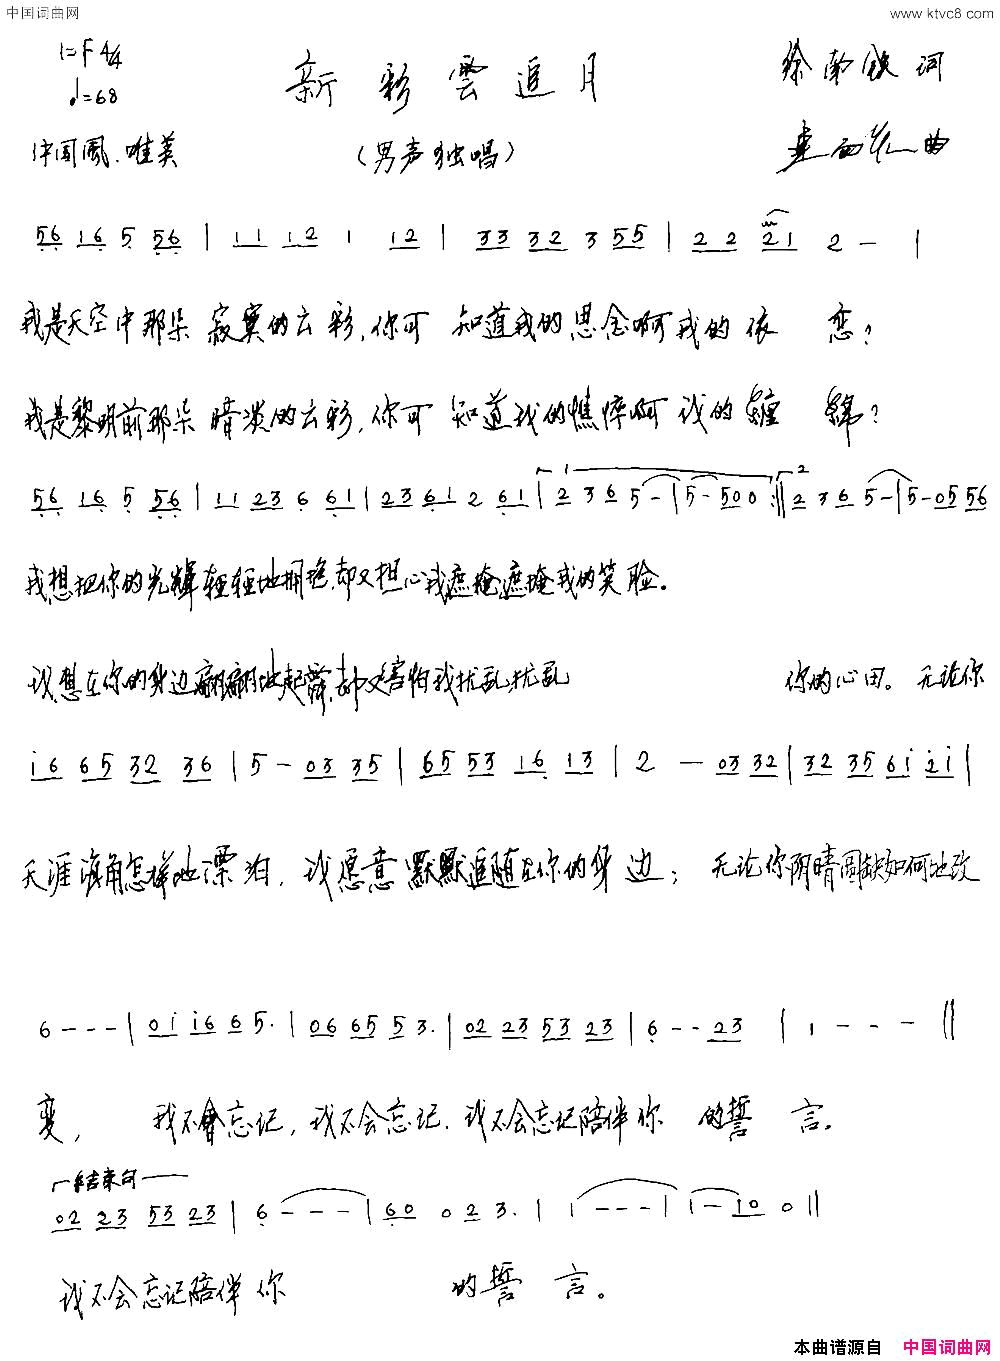 中国词曲网 www.ktvc8.com
1=F 4/4
♩=68
新彩雲追月
徐南铁 词
中国風.唯美
(男声独唱)
曲
56 16 5 56 | 11 12 1 12 | 33 32 3 55 | 22 21 2 - |
我是天空中那朵寂寞的云彩,你可知道我的思念啊我的依恋?
我是黎明前那朵暗淡的云彩,你可知道我的憔悴啊我的纏綿?
56 16 5 56 | 11 23 6 61 | 23 61 2 61 | 1 2 36 5 - | 5 - 500 :|| 2 2 36 5 - | 5 - 05 56
我想把你的光輝輕輕地拥抱,却又担心我遮掩遮掩我的笑脸。
我想在你的身边翩翩地起舞,却又害怕我扰乱扰乱你的心田。无论你
i6 65 32 36 | 5 - 03 35 | 65 53 16 13 | 2 - 03 32 | 32 35 6i 2i |
天涯海角怎样地漂泊,我愿意默默追随在你的身边;无论你阴晴圆缺如何地改
6 - - - | 0i i6 6 5. | 06 65 5 3. | 02 23 53 23 | 6 - - 23 | 1 - - - ||
变,我不會忘记,我不会忘记.我不会忘记陪伴你的誓言。
结束句
02 23 53 23 | 6 - - - | 60 0 2 3. | i - - - | i - i0 0 ||
我不会忘记陪伴你的誓言。
本曲谱源自 中国词曲网